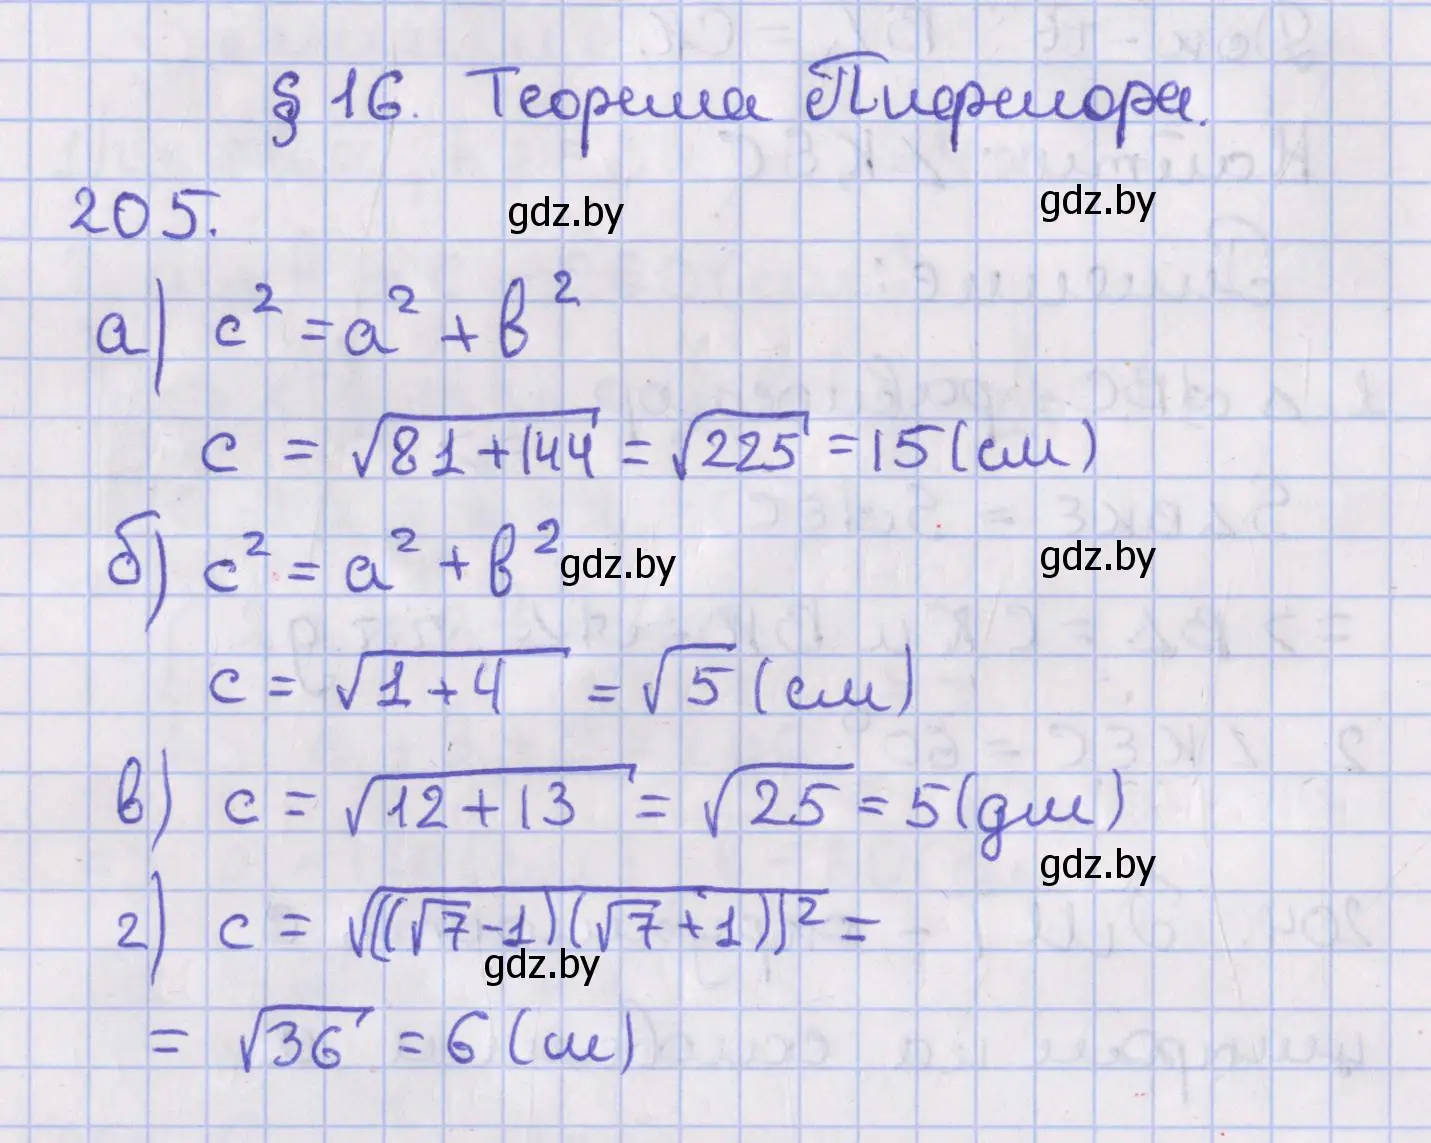 § 16. Теорема Пифагора.
205.
gdz.by
gdz.by
а) c² = a² + b²
c = √81+144 = √225 = 15 (см)
б) c² = a² + b²
gdz.by
gdz.by
c = √1+4 = √5 (см)
в) c = √12+13 = √25 = 5 (дм)
gdz.by
г) c = √((√7-1)(√7+1))² =
gdz.by
= √36 = 6 (см)